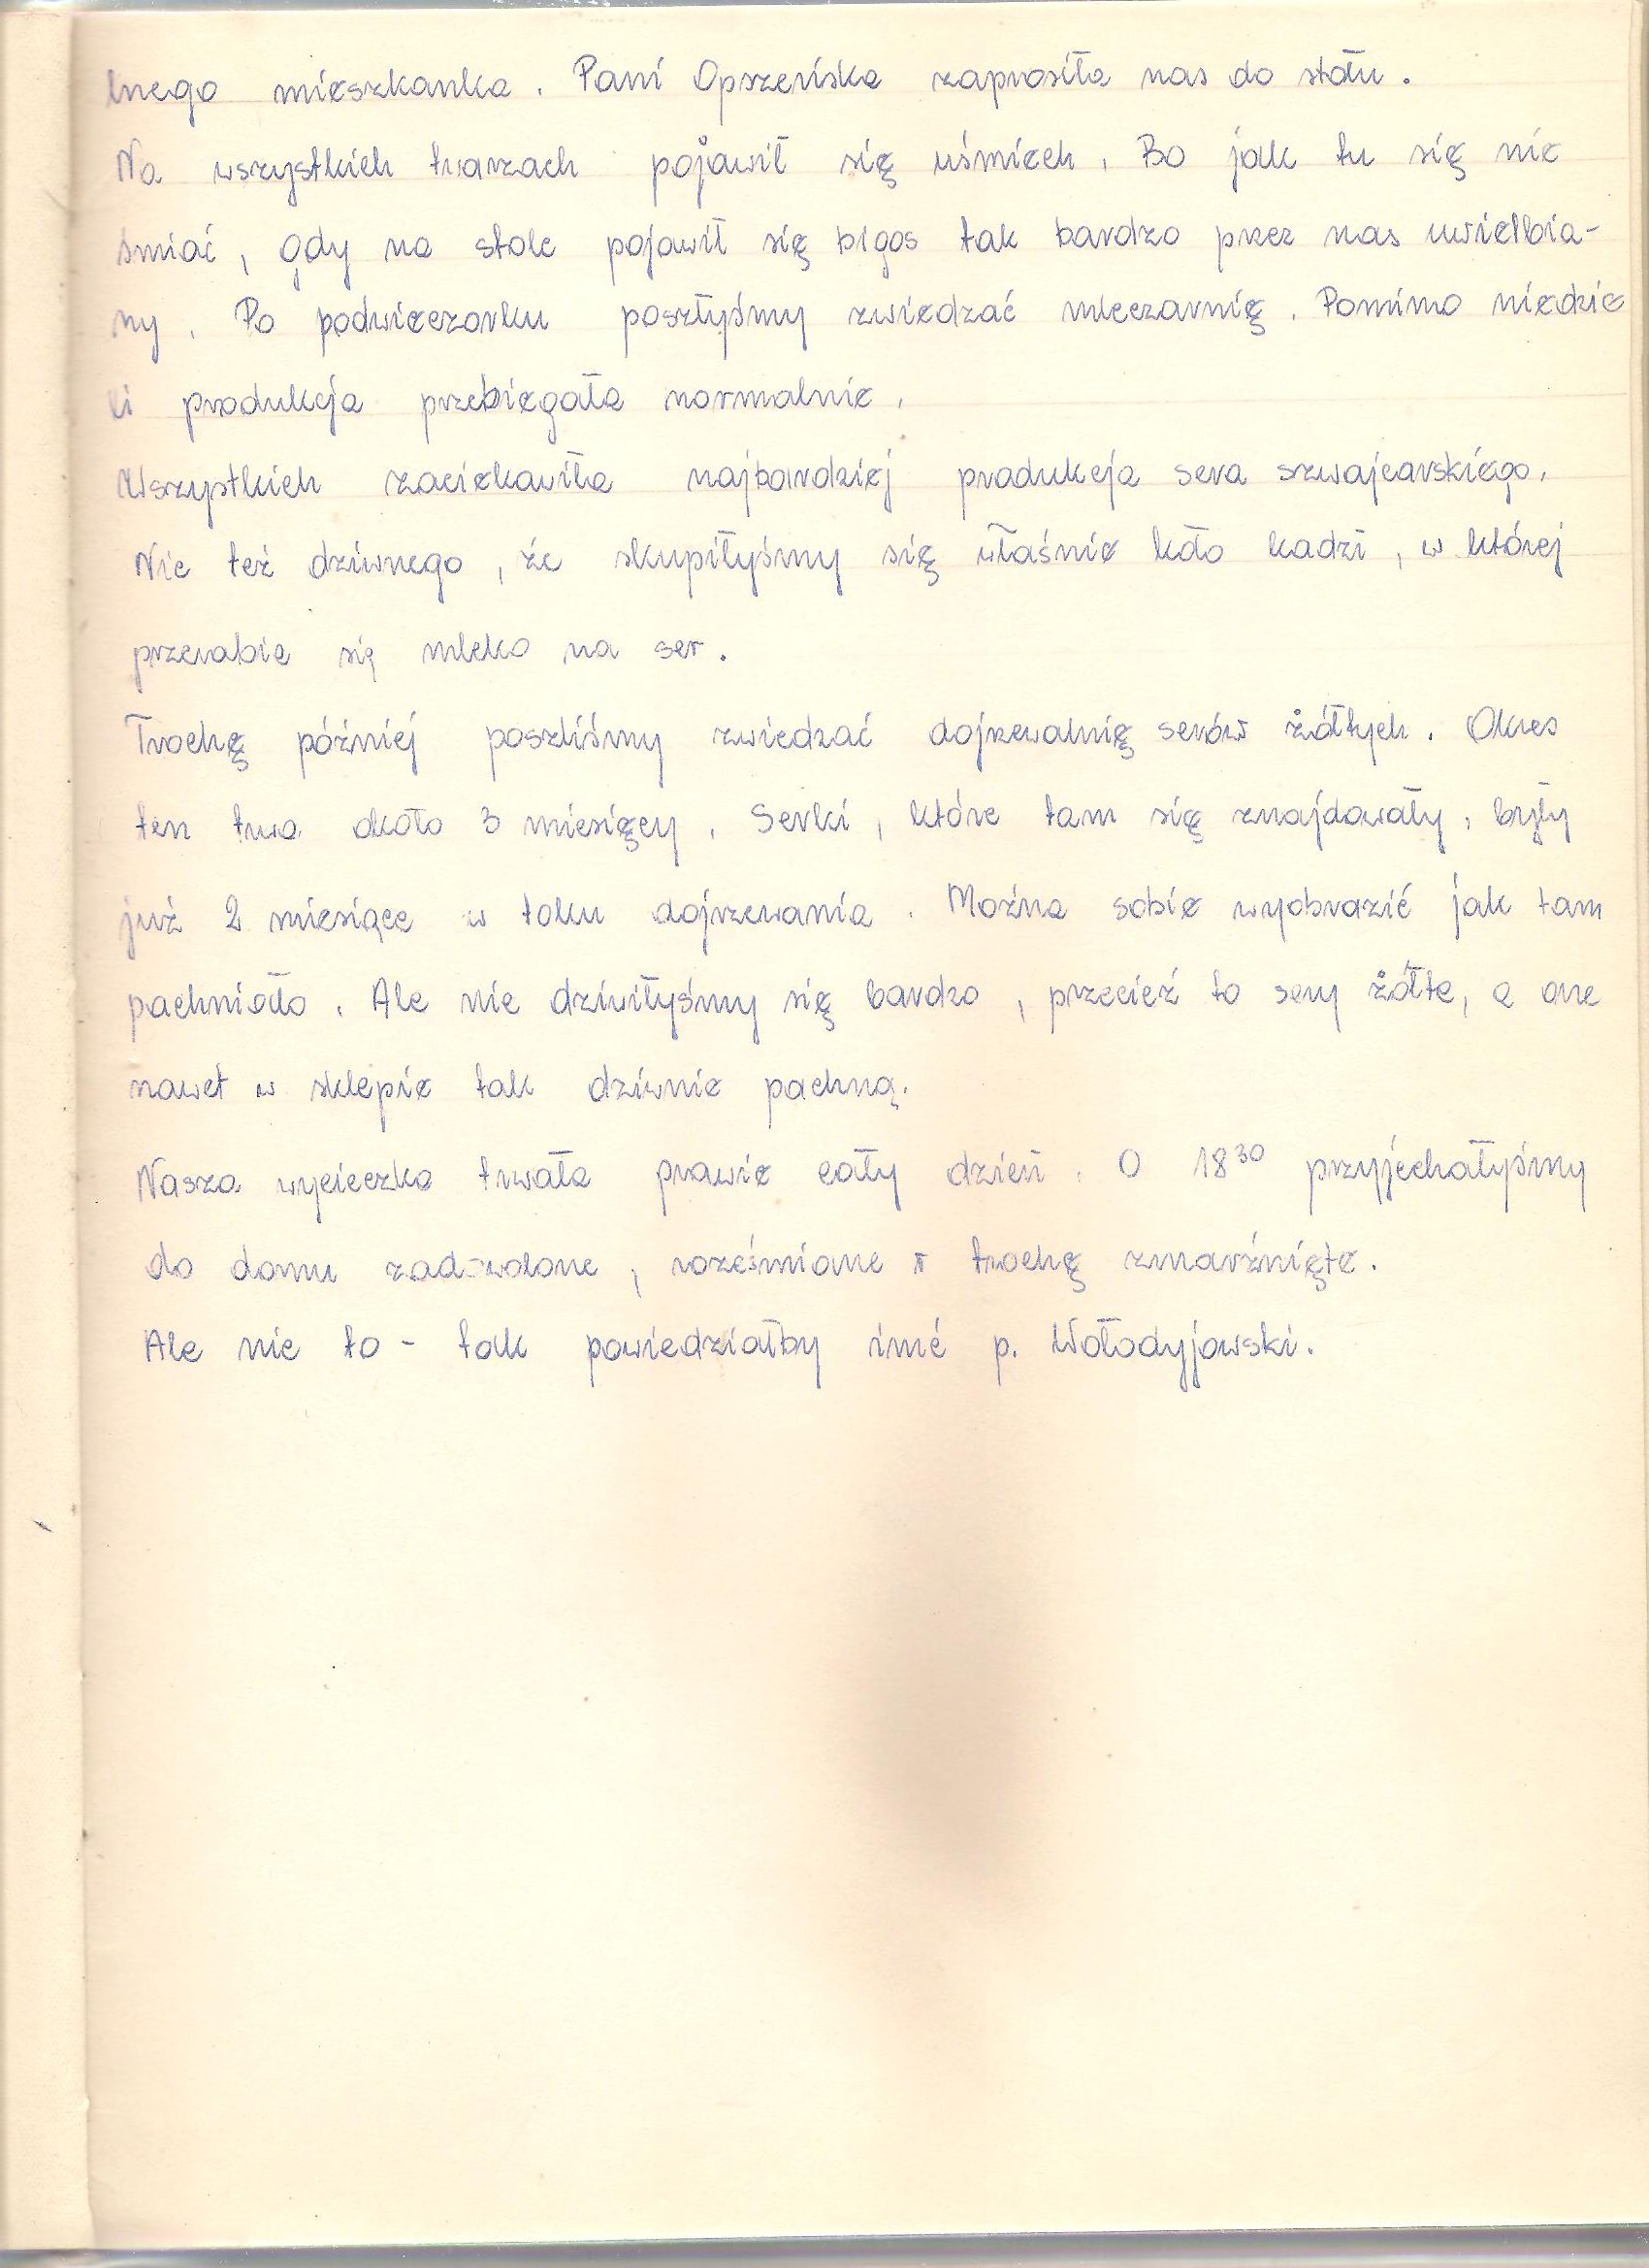 lnego mieszkanka. Pani Opszeńska zaprosiła nas do stołu.
Na wszystkich twarzach pojawił się uśmiech. Bo jak tu się nie
śmiać, gdy na stole pojawił się bigos tak bardzo przez nas uwielbia-
ny. Po podwieczorku poszłyśmy zwiedzać mleczarnię. Pomimo niedzie
li produkcja przebiegała normalnie.
Wszystkich zaciekawiła najbardziej produkcja sera szwajcarskiego.
Nic też dziwnego, że skupiłyśmy się właśnie koło kadzi, w której
przerabia się mleko na ser.
Trochę później poszliśmy zwiedzać dojrzewalnię serów żółtych. Okres
ten trwa około 3 miesięcy. Serki, które tam się znajdowały, były
już 2 miesiące w toku dojrzewania. Można sobie wyobrazić jak tam
pachniało. Ale nie dziwiłyśmy się bardzo, przecież to sery żółte, a one
nawet w sklepie tak dziwnie pachną.
Nasza wycieczka trwała prawie cały dzień. O 18³⁰ przyjechałyśmy
do domu zadowolone, roześmiane i trochę zmarźnięte.
Ale nie to - tak powiedziałby imć p. Wołodyjowski.